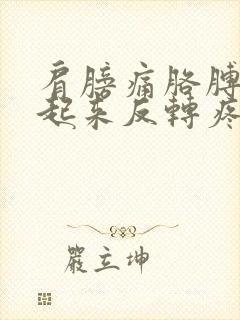 肩膀痛胳膊
起来反轉疼
嚴立坤